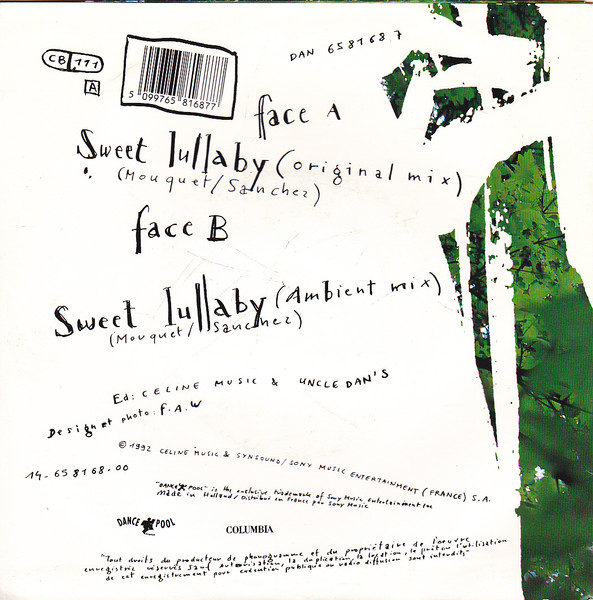 CB 111
A
5 099765 816877
DAN 658168 7
face A
Sweet lullaby (original mix)
(Mouquet/Sanchez)
face B
Sweet lullaby (Ambient mix)
(Mouquet/Sanchez)
Ed: CELINE MUSIC & UNCLE DAN'S
Design et photo: F.A.W
© 1992 CELINE MUSIC & SYNSOUND/SONY MUSIC ENTERTAINMENT (FRANCE) S.A.
14-658168-00
"DANCE POOL" is the exclusive trademark of Sony Music Entertainment Inc
Made in Holland/Distribué en France par Sony Music
DANCE POOL
COLUMBIA
"Tout droits du producteur de phonogramme et du propriétaire de l'oeuvre
enregistrée réservés sauf autorisation, la duplication, la location, le prêt ou l'utilisation
de cet enregistrement pour exécution publique ou radio diffusion sont interdits"